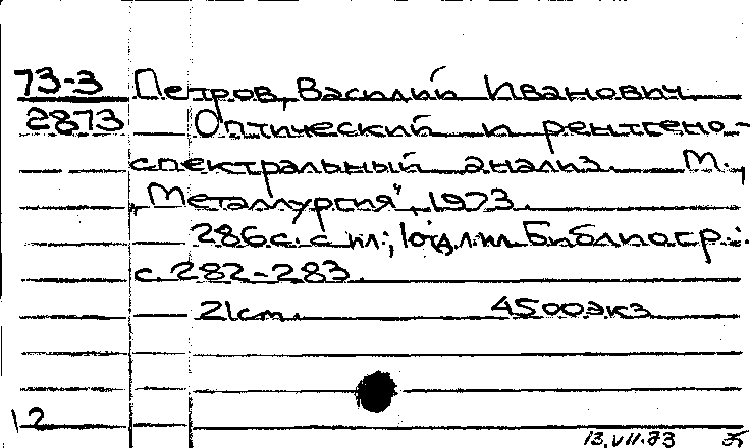 73-3 Петров, Василий Иванович
2873 Оптический и рентгено-
спектральный анализ. М.,
„Металлургия", 1973.
286с. с ил.; 1отд.л.ил. Библиогр.:
с. 282-283.
21см. 4500экз
12
13.VII.73